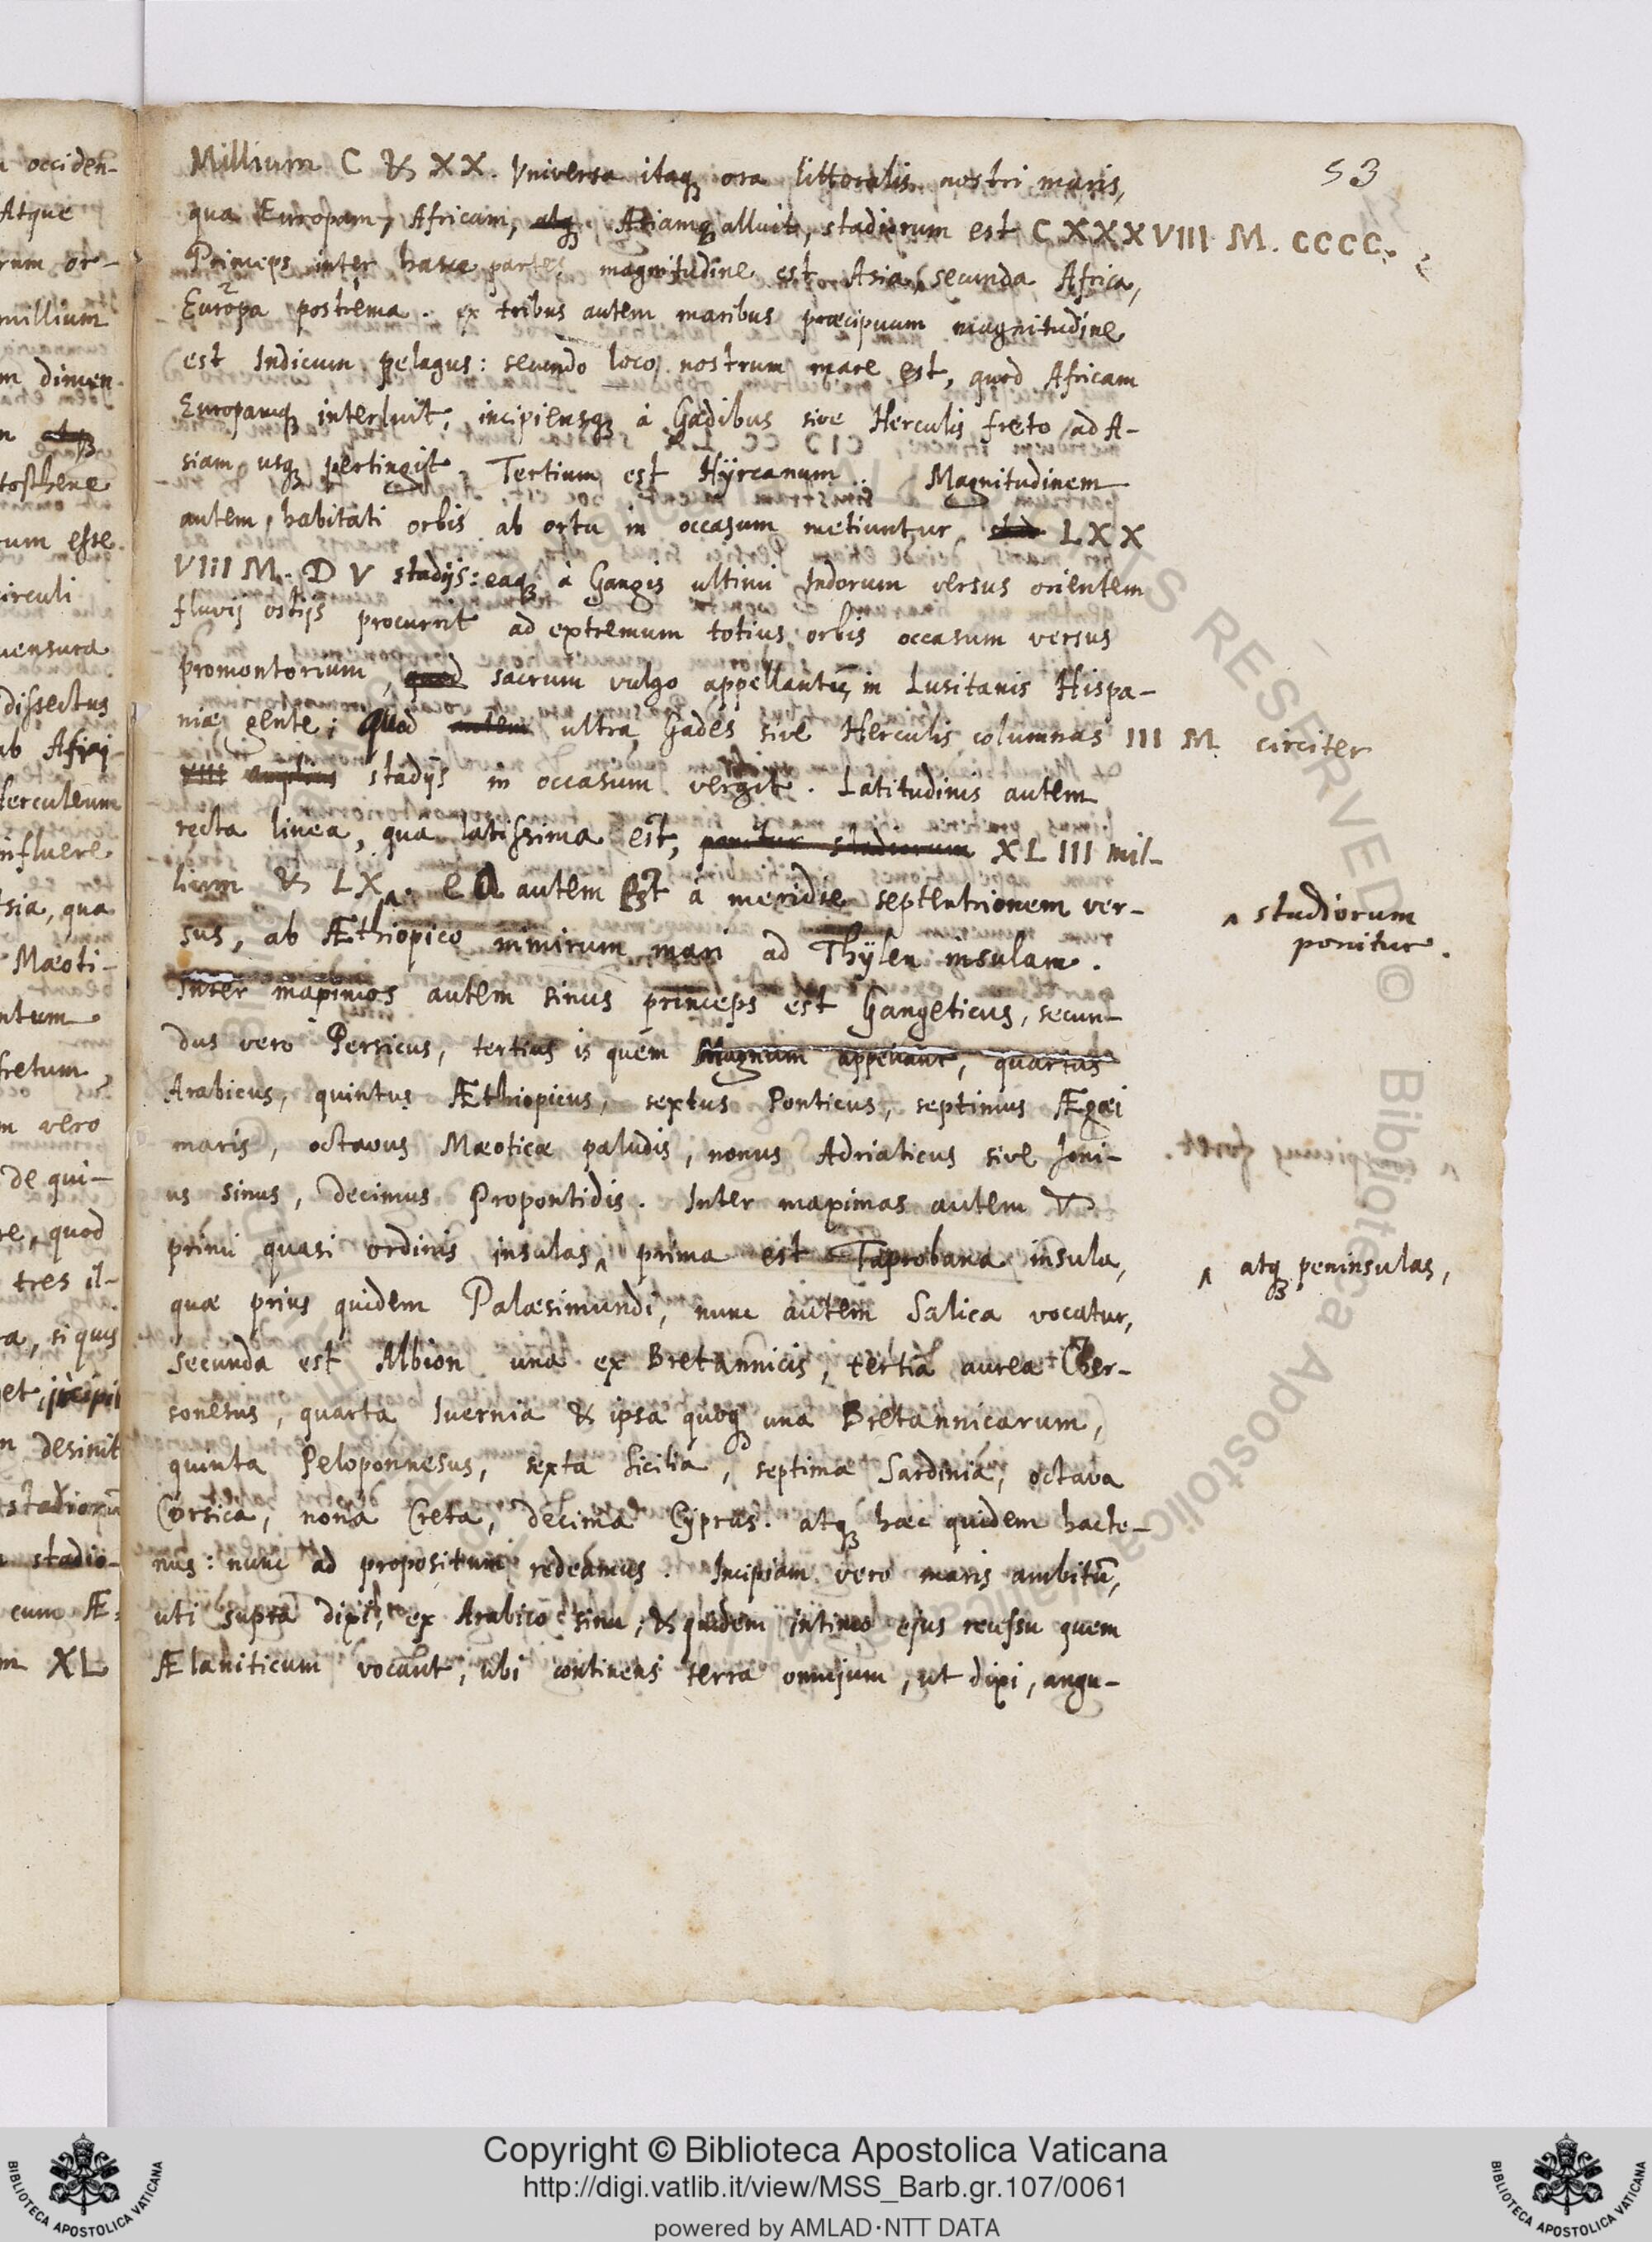 53
Millium C & XX. Vniversa itaq; ora littoralis nostri maris,
qua Europam, Africam, atq; Asiamq; alluit, stadiorum est CXXXVIII M. CCCC.
Princeps inter hasce partes magnitudine est Asia, secunda Africa,
Europa postrema. ex tribus autem maribus præcipuum magnitudine
est Indicum pelagus: secundo loco nostrum mare est, quod Africam
Europamq; interluit, incipiensq; à Gadibus sive Herculis freto ad A-
siam usq; pertingit. Tertium est Hÿrcanum. Magnitudinem
autem habitati orbis ab ortu in occasum metiuntur LXX
VIII M. D V stadijs: eaq; à Gangis ultimi Indorum versus orientem
fluvij ostijs procurrit ad extremum totius orbis occasum versus
promontorium, quod sacrum vulgo appellant, in Lusitanis Hispa-
niæ gente; Quod autem ultra Gades sive Herculis columnas III M circiter
VIII amplius stadijs in occasum vergit. Latitudinis autem
recta linea, qua latissima est, ponitur stadiorum XLIII mil-
lium & LX ^. ea autem est à meridie septentrionem ver-
^ stadiorum
ponitur.
sus, ab Æthiopico nimirum mari ad Thÿlen insulam.
Inter maximos autem sinus princeps est Gangeticus, secun-
dus vero Persicus, tertius is quem Magnum appellant, quartus
Arabicus, quintus Æthiopicus, sextus Ponticus, septimus Ægæi
maris, octavus Mæoticæ paludis, nonus Adriaticus sive Joni-
us sinus, decimus Propontidis. Inter maximas autem &
primi quasi ordinis insulas ^ prima est Taprobana insula,
^ atq; peninsulas,
quæ prius quidem Palæsimundi, nunc autem Salica vocatur,
secunda est Albion una ex Bretannicis, tertia aurea Cher-
sonesus, quarta Ivernia & ipsa quoq; una Bretannicarum,
quinta Peloponnesus, sexta Sicilia, septima Sardinia, octava
Corsica, nona Creta, decima Cyprus. atq; hæc quidem hacte-
nus: nunc ad propositum redeamus. Incipiam vero maris ambitū,
uti supra dixi, ex Arabico sinu; & quidem intimo ejus recessu quem
Ælaniticum vocant, ubi continens terra omnium, ut dixi, angu-
occiden-
Atque
rum or-
millium
m dimen-
n atq;
tosthene
rum esse
circuli
mensura
dissectus
ab Afri-
Herculeum
influere
sia, qua
Mæoti-
ntum
fretum,
m vero
de qui-
re, quod
tres il-
a, si quis
et, incipi
n desinit
stadiorū
stadio-
cum Æ-
m XL
RIGHTS RESERVED © Biblioteca Apostolica Vaticana
Copyright © Biblioteca Apostolica Vaticana
http://digi.vatlib.it/view/MSS_Barb.gr.107/0061
powered by AMLAD·NTT DATA
BIBLIOTECA APOSTOLICA VATICANA
BIBLIOTECA APOSTOLICA VATICANA